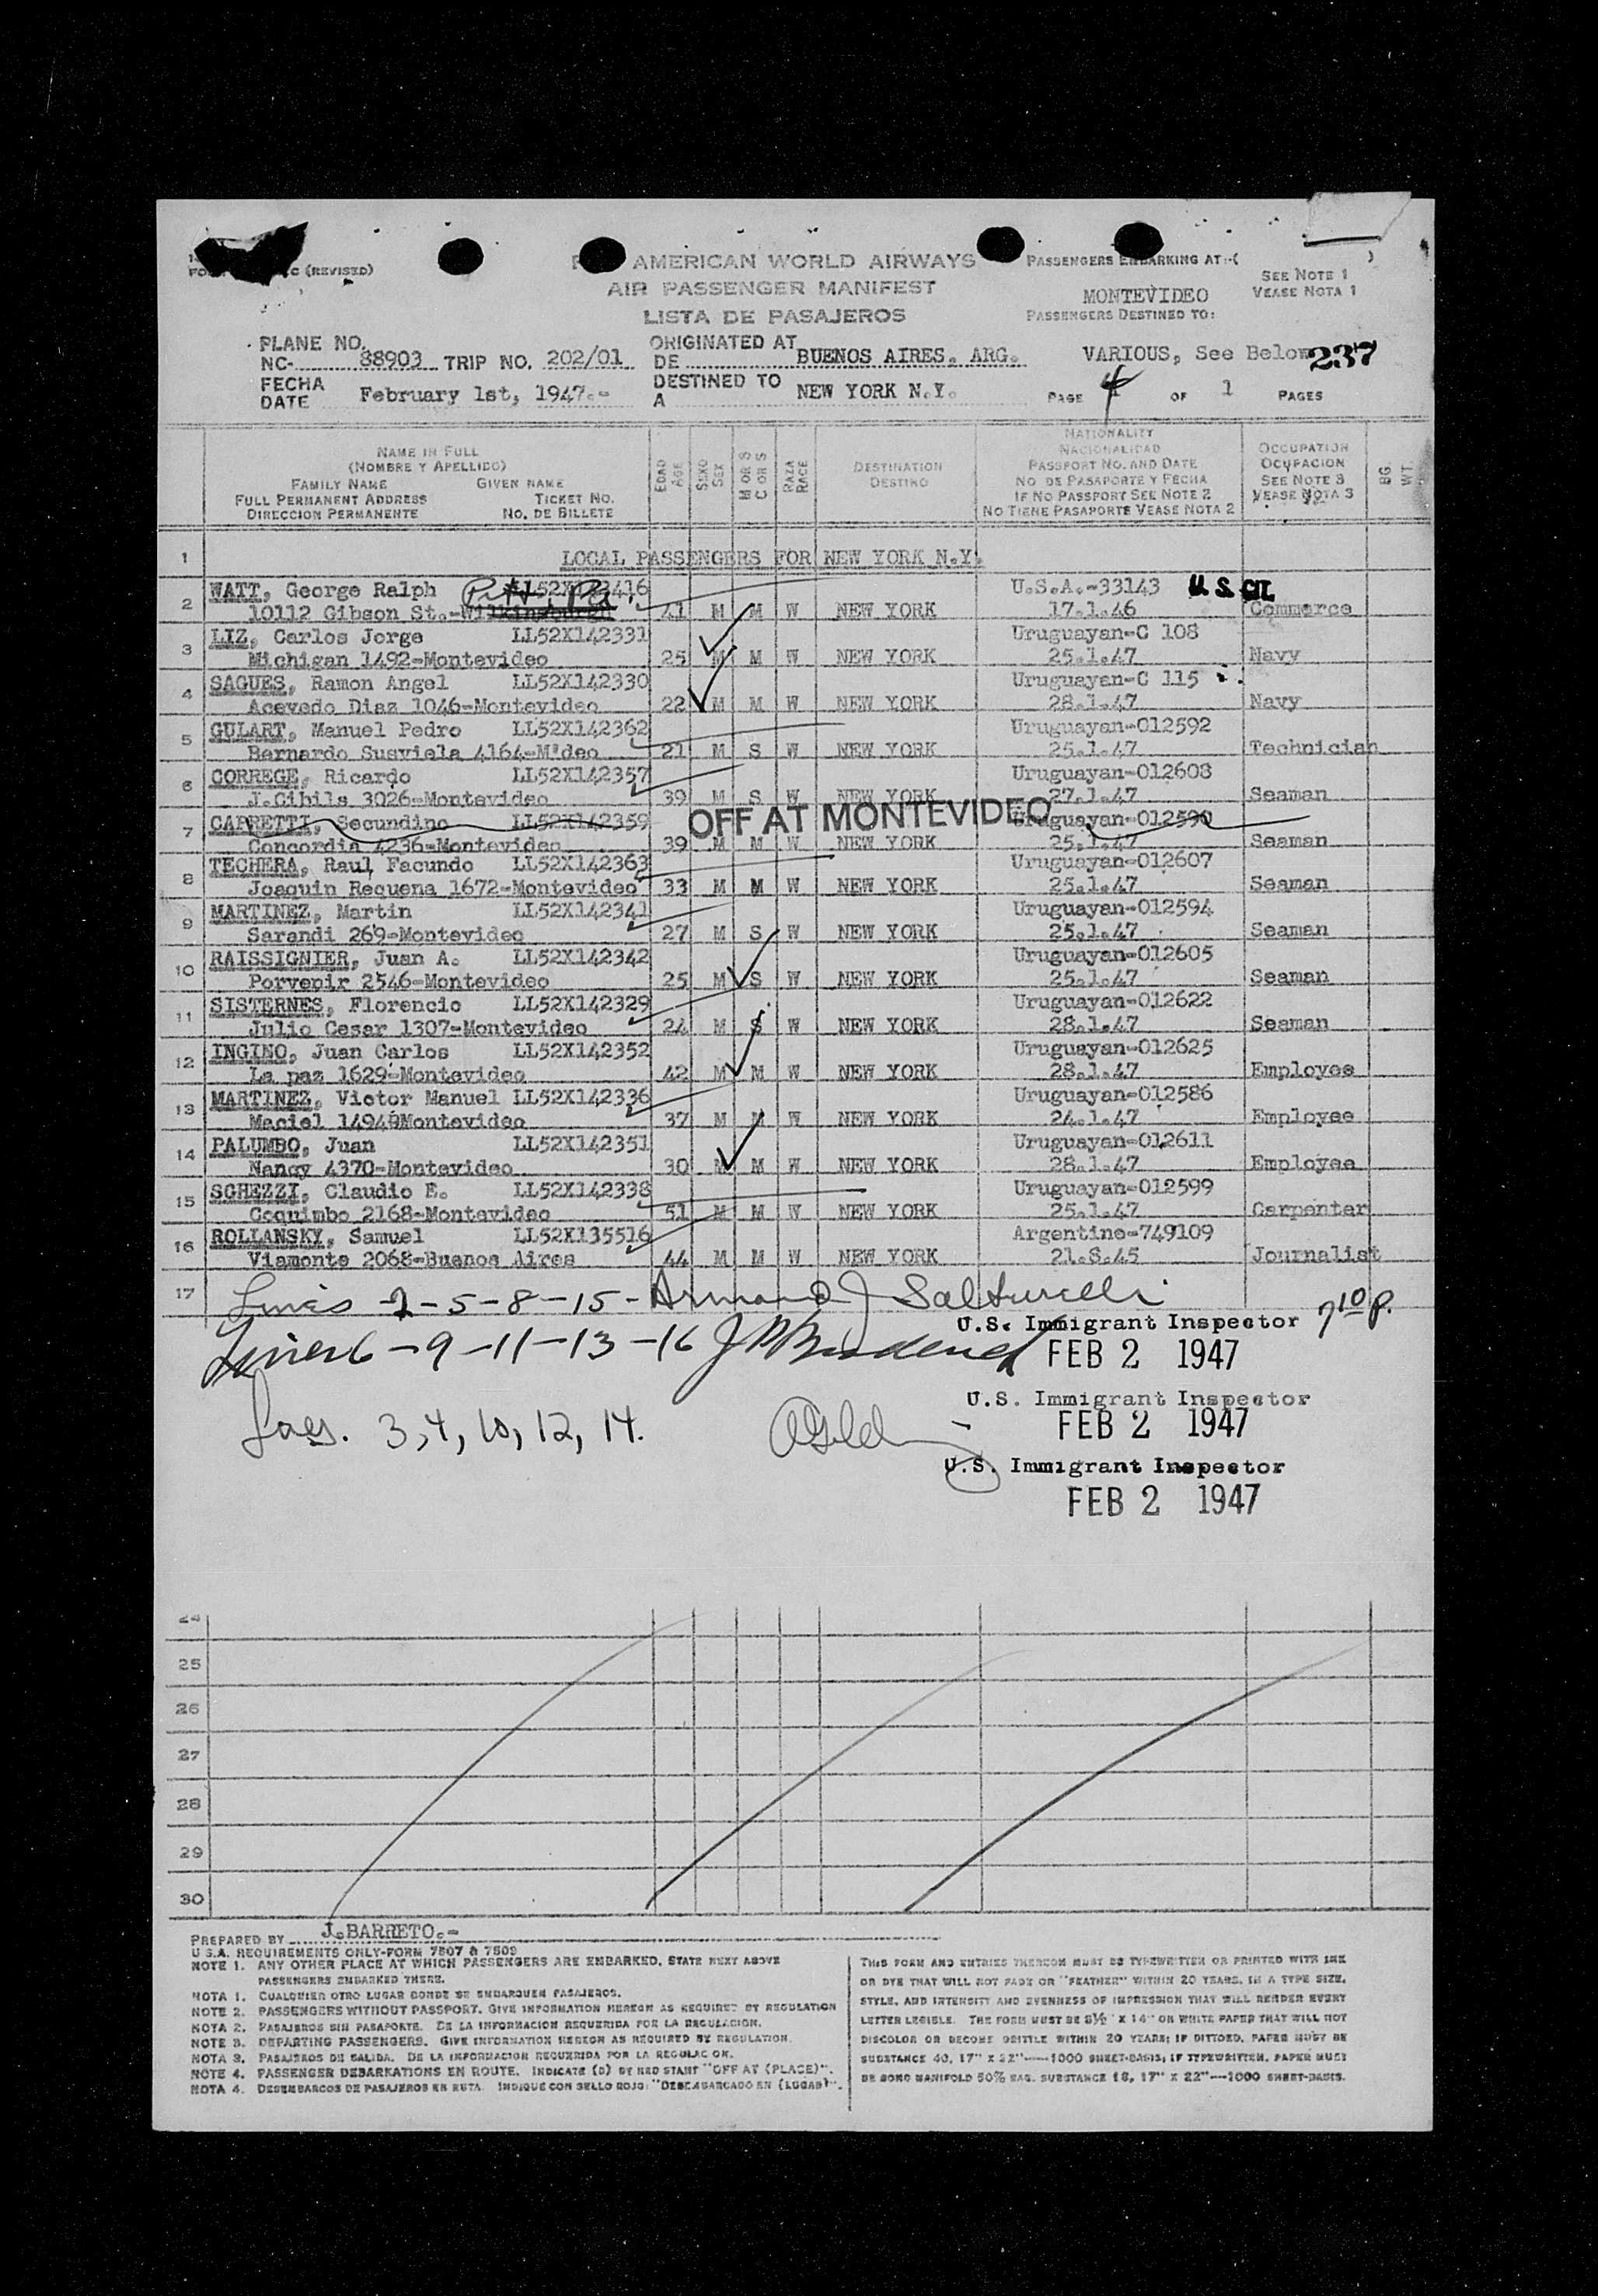 C (REVISED)
AMERICAN WORLD AIRWAYS
AIR PASSENGER MANIFEST
LISTA DE PASAJEROS
PASSENGERS EMBARKING AT:-( )
SEE NOTE 1
VEASE NOTA 1
MONTEVIDEO
PASSENGERS DESTINED TO:
VARIOUS, See Below 237
PLANE NO.
NC- 88903 TRIP NO. 202/01
ORIGINATED AT
DE BUENOS AIRES. ARG.
FECHA
DATE February 1st, 1947.-
DESTINED TO
A NEW YORK N.Y.
PAGE 4 OF 1 PAGES
NAME IN FULL
(NOMBRE Y APELLIDO)
FAMILY NAME GIVEN NAME
FULL PERMANENT ADDRESS TICKET NO.
DIRECCION PERMANENTE NO. DE BILLETE
EDAD AGE
SEXO SEX
M OR S C OR S
RAZA RACE
DESTINATION
DESTINO
NATIONALITY
NACIONALIDAD
PASSPORT NO. AND DATE
NO DE PASAPORTE Y FECHA
IF NO PASSPORT SEE NOTE 2
NO TIENE PASAPORTE VEASE NOTA 2
OCCUPATION
OCUPACION
SEE NOTE 3
VEASE NOTA 3
BG. WT.
1 LOCAL PASSENGERS FOR NEW YORK N.Y.
2 WATT, George Ralph Pitt. Pa. U.S.A.-33143 U.S. CIT.
10112 Gibson St.-Wilkinsburgh 41 M M W NEW YORK 17.1.46 Commerce
3 LIZ, Carlos Jorge LL52X142331 Uruguayan-C 108
Michigan 1492-Montevideo 25 M M W NEW YORK 25.1.47 Navy
4 SAGUES, Ramon Angel LL52X142330 Uruguayan-C 115
Acevedo Diaz 1046-Montevideo 22 M M W NEW YORK 28.1.47 Navy
5 GULART, Manuel Pedro LL52X142362 Uruguayan-012592
Bernardo Susviela 4164-M'deo 21 M S W NEW YORK 25.1.47 Technician
6 CORREGE, Ricardo LL52X142357 Uruguayan-012608
J.Cibils 3026-Montevideo 39 M S W NEW YORK 27.1.47 Seaman
7 CAPRETTI, Secundino LL52X142359 OFF AT MONTEVIDEO Uruguayan-012590
Concordia 4236-Montevideo 39 M M W NEW YORK 25.1.47 Seaman
8 TECHERA, Raul Facundo LL52X142363 Uruguayan-012607
Joaquin Requena 1672-Montevideo 33 M M W NEW YORK 25.1.47 Seaman
9 MARTINEZ, Martin LL52X142341 Uruguayan-012594
Sarandi 269-Montevideo 27 M S W NEW YORK 25.1.47 Seaman
10 RAISSIGNIER, Juan A. LL52X142342 Uruguayan-012605
Porvenir 2546-Montevideo 25 M S W NEW YORK 25.1.47 Seaman
11 SISTERNES, Florencio LL52X142329 Uruguayan-012622
Julio Cesar 1307-Montevideo 24 M S W NEW YORK 28.1.47 Seaman
12 INGINO, Juan Carlos LL52X142352 Uruguayan-012625
La paz 1629-Montevideo 42 M M W NEW YORK 28.1.47 Employee
13 MARTINEZ, Victor Manuel LL52X142336 Uruguayan-012586
Maciel 1494 Montevideo 37 M M W NEW YORK 24.1.47 Employee
14 PALUMBO, Juan LL52X142351 Uruguayan-012611
Nancy 4370-Montevideo 30 M M W NEW YORK 28.1.47 Employee
15 SGHEZZI, Claudio E. LL52X142338 Uruguayan-012599
Coquimbo 2168-Montevideo 51 M M W NEW YORK 25.1.47 Carpenter
16 ROLLANSKY, Samuel LL52X135516 Argentine-749109
Viamonte 2068-Buenos Aires 44 M M W NEW YORK 21.8.45 Journalist
17 Lines 2-5-8-15- Armand J Salturelli
U.S. Immigrant Inspector 7 10 p.
Lines 6-9-11-13-16
FEB 2 1947
U.S. Immigrant Inspector
3, 4, 10, 12, 14.
FEB 2 1947
U.S. Immigrant Inspector
FEB 2 1947
24
25
26
27
28
29
30
PREPARED BY J.BARRETO.-
U.S.A. REQUIREMENTS ONLY-FORM 7507 & 7509
NOTE 1. ANY OTHER PLACE AT WHICH PASSENGERS ARE EMBARKED, STATE NEXT ABOVE
PASSENGERS EMBARKED THERE.
NOTA 1. CUALQUIER OTRO LUGAR DONDE SE EMBARQUEN PASAJEROS.
NOTE 2. PASSENGERS WITHOUT PASSPORT. GIVE INFORMATION HEREON AS REQUIRED BY REGULATION
NOTA 2. PASAJEROS SIN PASAPORTE. DE LA INFORMACION REQUERIDA POR LA REGULACION.
NOTE 3. DEPARTING PASSENGERS. GIVE INFORMATION HEREON AS REQUIRED BY REGULATION.
NOTA 3. PASAJEROS DE SALIDA. DE LA INFORMACION REQUERIDA POR LA REGULACION.
NOTE 4. PASSENGER DEBARKATIONS EN ROUTE. INDICATE (D) BY RED STAMP "OFF AT (PLACE)".
NOTA 4. DESEMBARCOS DE PASAJEROS EN RUTA. INDIQUE CON SELLO ROJO: "DESEMBARCADO EN (LUGAR)".
THIS FORM AND ENTRIES THEREON MUST BE TYPEWRITTEN OR PRINTED WITH INK
OR DYE THAT WILL NOT FADE OR "FEATHER" WITHIN 20 YEARS, IN A TYPE SIZE,
STYLE, AND INTENSITY AND EVENNESS OF IMPRESSION THAT WILL RENDER EVERY
LETTER LEGIBLE. THE FORM MUST BE 8½" X 14" ON WHITE PAPER THAT WILL NOT
DISCOLOR OR BECOME BRITTLE WITHIN 20 YEARS; IF DITTOED, PAPER MUST BE
SUBSTANCE 40, 17" X 22"—1000 SHEET-BASIS; IF TYPEWRITTEN, PAPER MUST
BE BOND MANIFOLD 50% RAG. SUBSTANCE 18, 17" X 22"—1000 SHEET-BASIS.